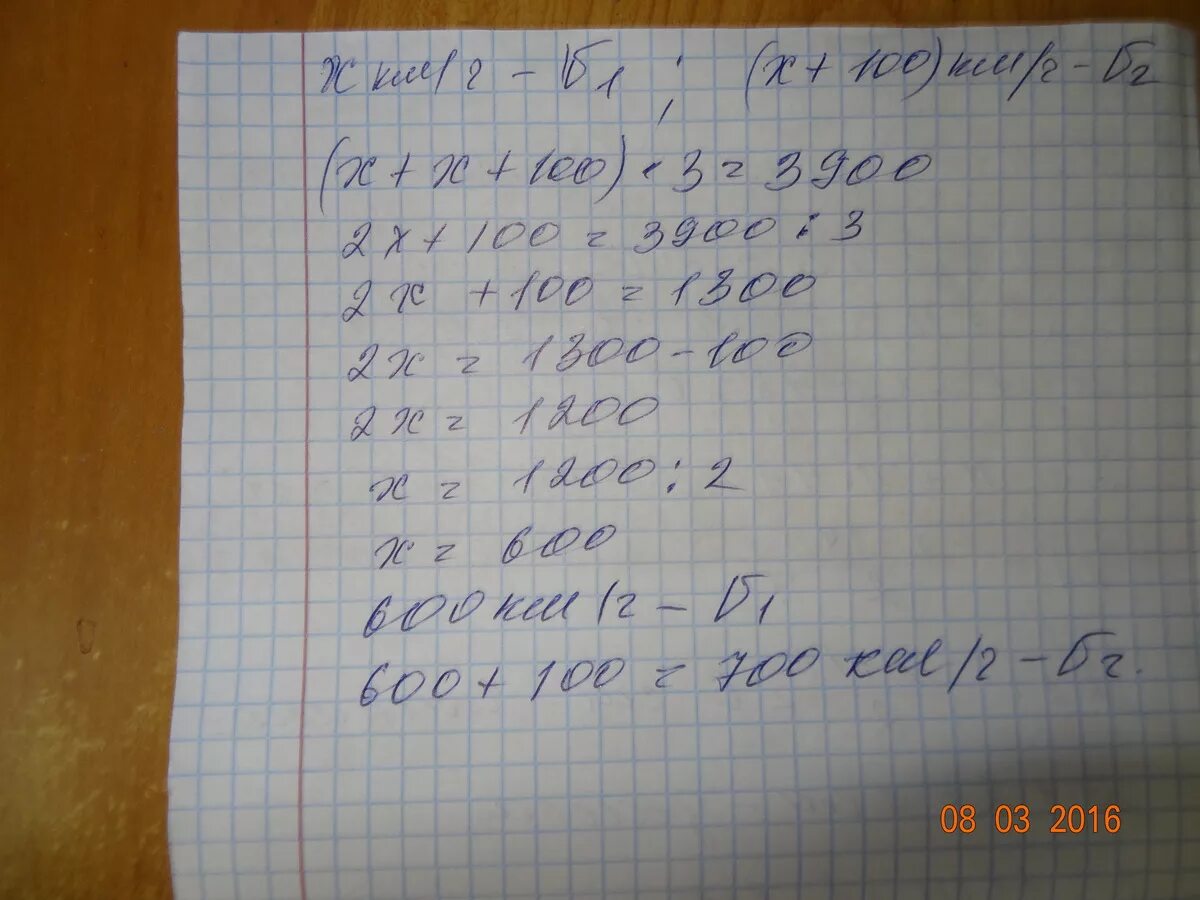 х км/г - Б1 ; (х + 100) км/г - Б2
(х + х + 100) · 3 = 3900
2х + 100 = 3900 : 3
2х + 100 = 1300
2х = 1300 - 100
2х = 1200
х = 1200 : 2
х = 600
600 км/г - Б1
600 + 100 = 700 км/г - Б2.
08 03 2016